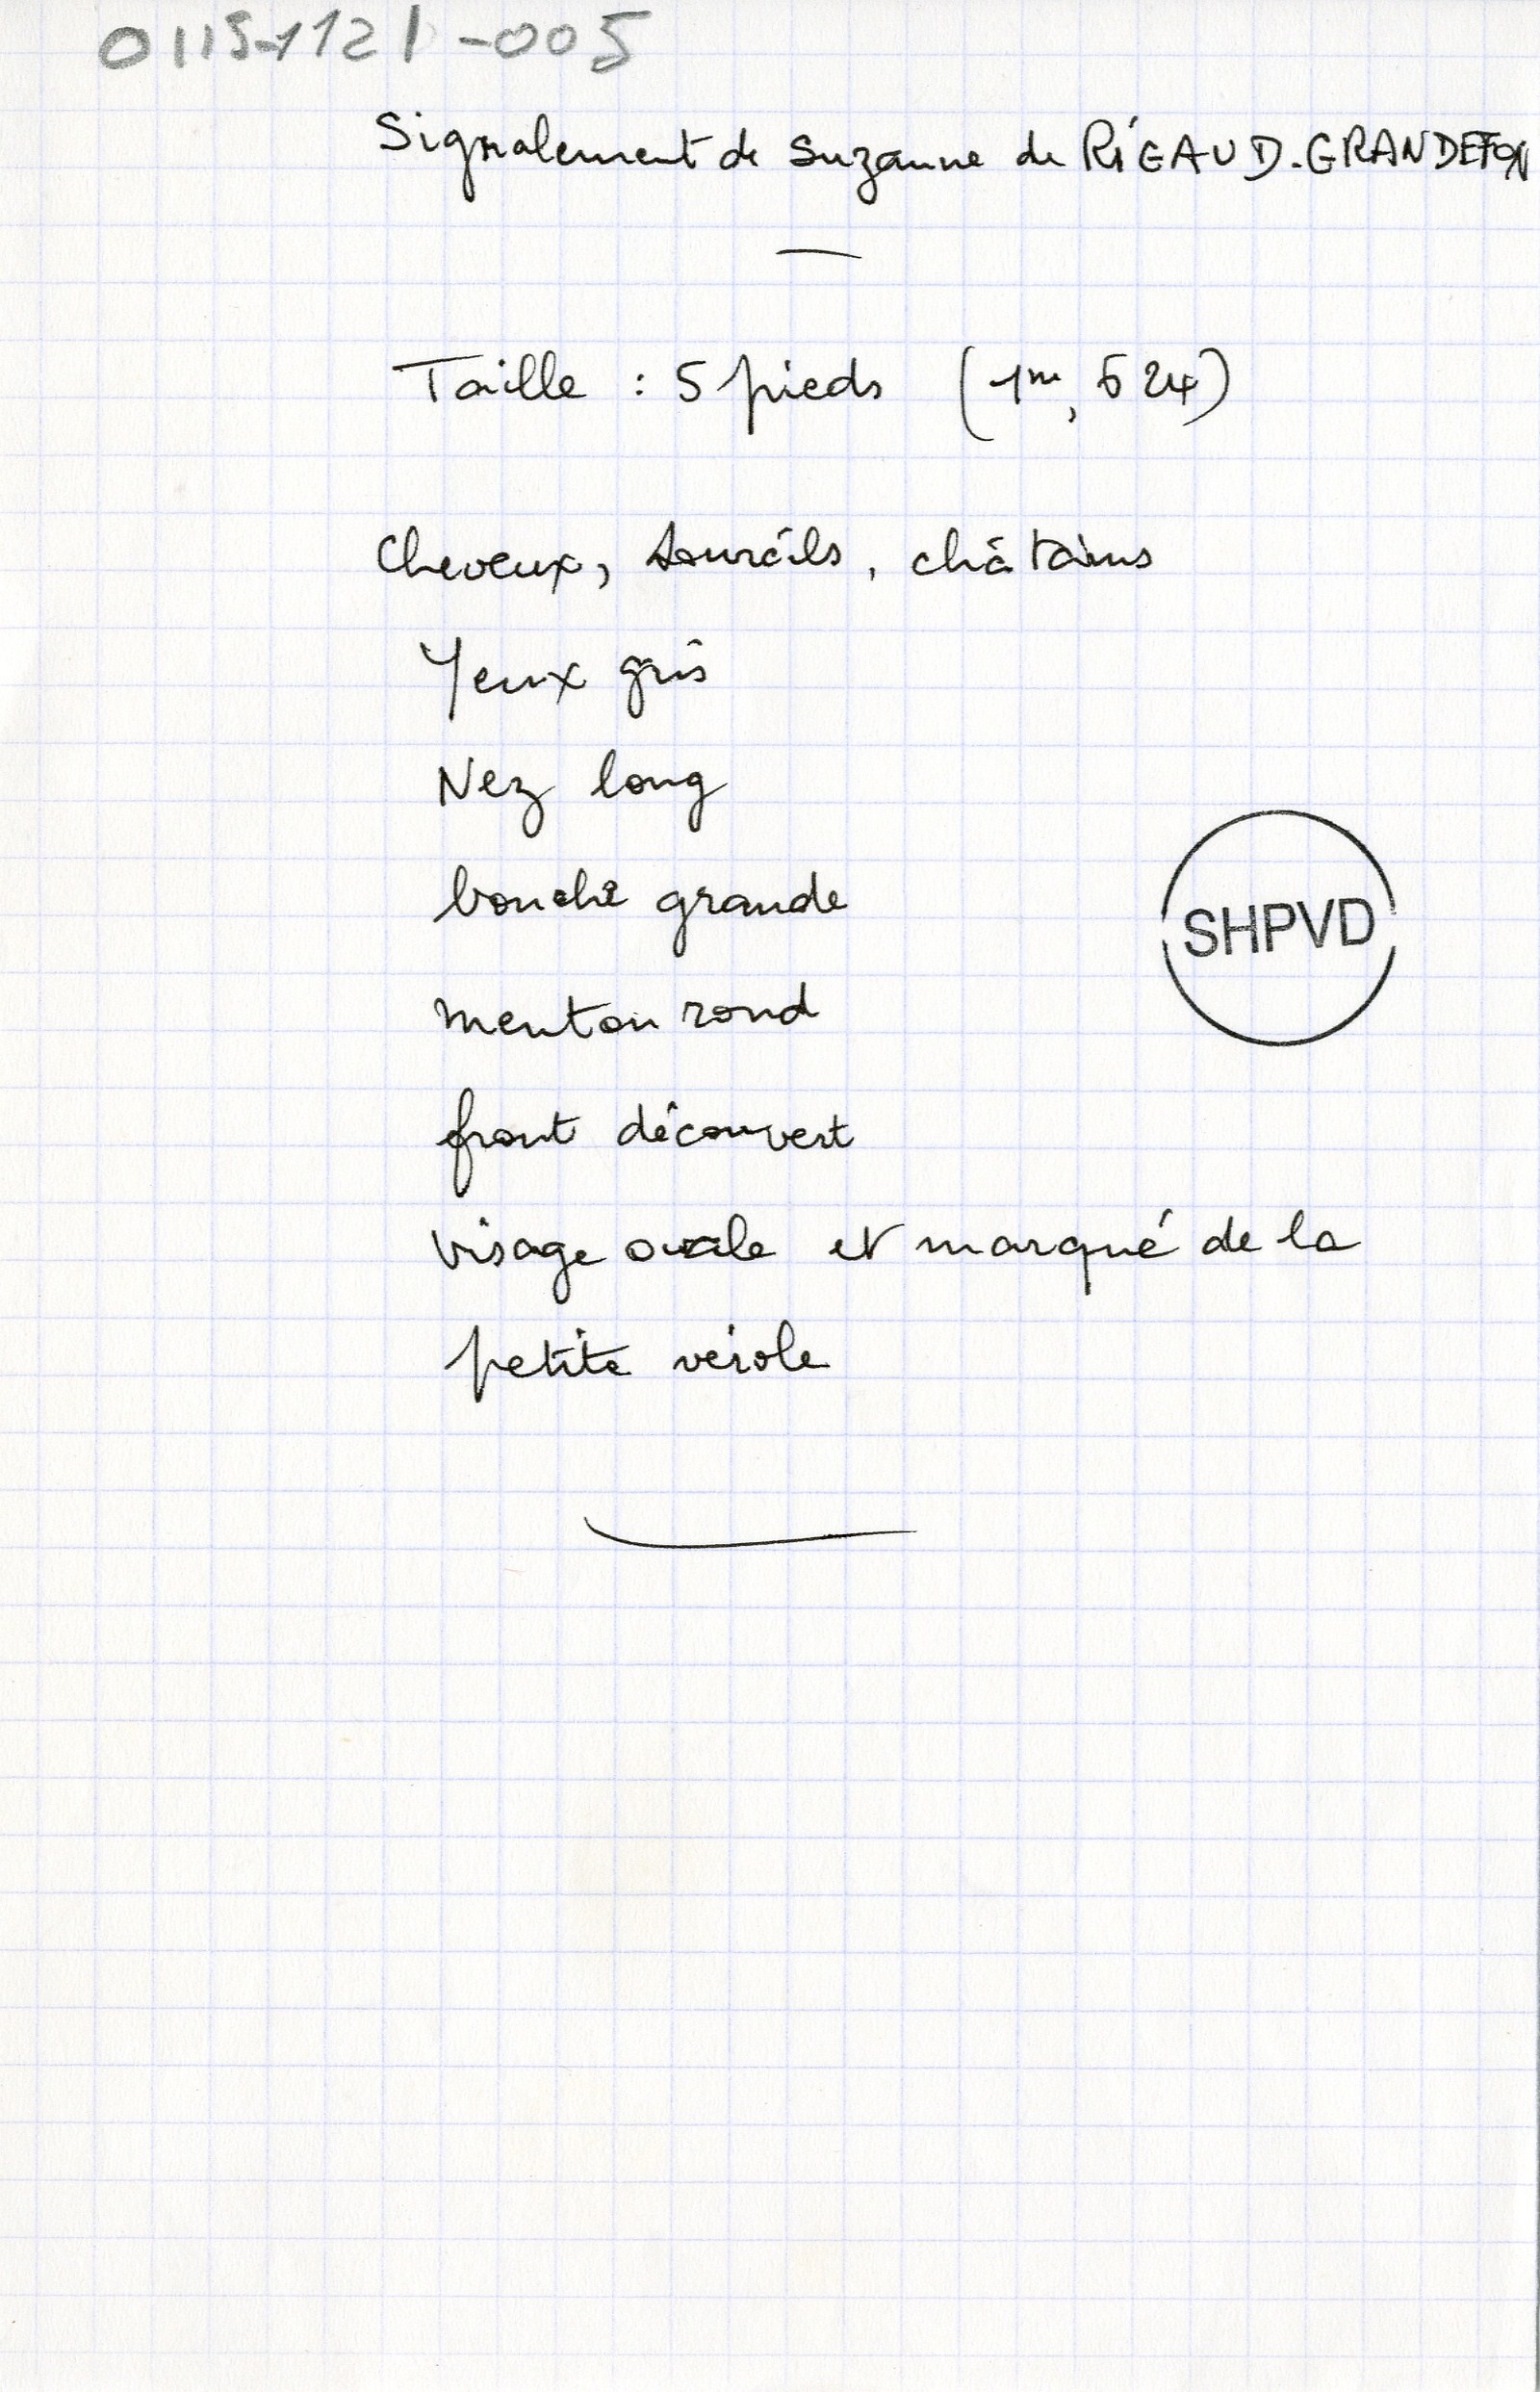 0115-1121-005
Signalement de Suzanne de RIGAUD-GRANDEFON
Taille : 5 pieds (1m, 524)
Cheveux, sourcils, châtains
Yeux gris
Nez long
bouche grande
SHPVD
menton rond
front découvert
visage ovale et marqué de la
petite vérole